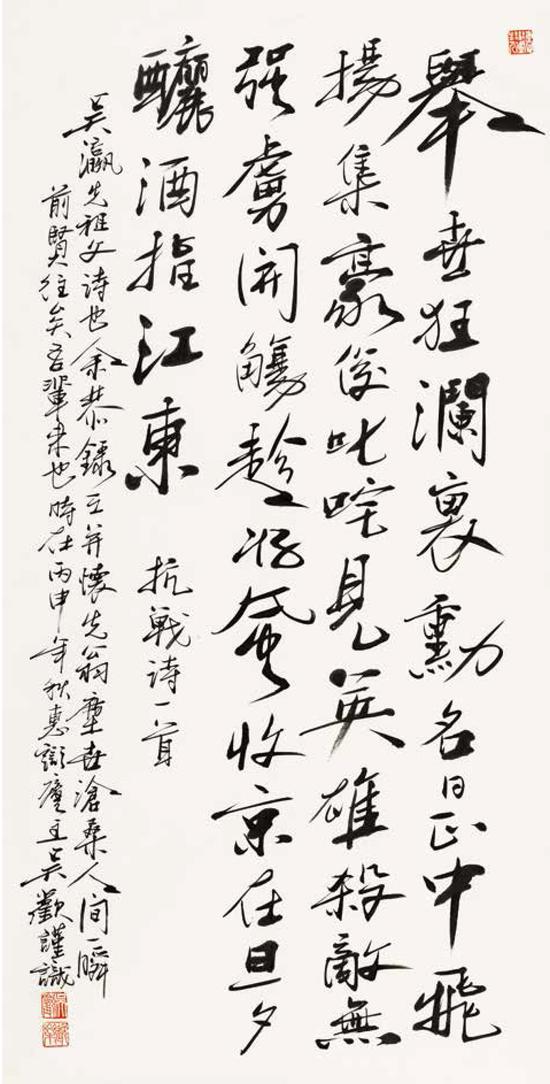 舉世狂瀾裏勳名日正中飛
揚集豪俊叱咤見英雄殺敵無
強虜開觴趁好風收京在旦夕
釃酒指江東 抗戰詩一首
吳瀛先祖父詩也余恭錄之并懷先翁塵世滄桑人间一瞬
前賢往矣吾輩来也時在丙申年秋惠廬主吳歡謹識